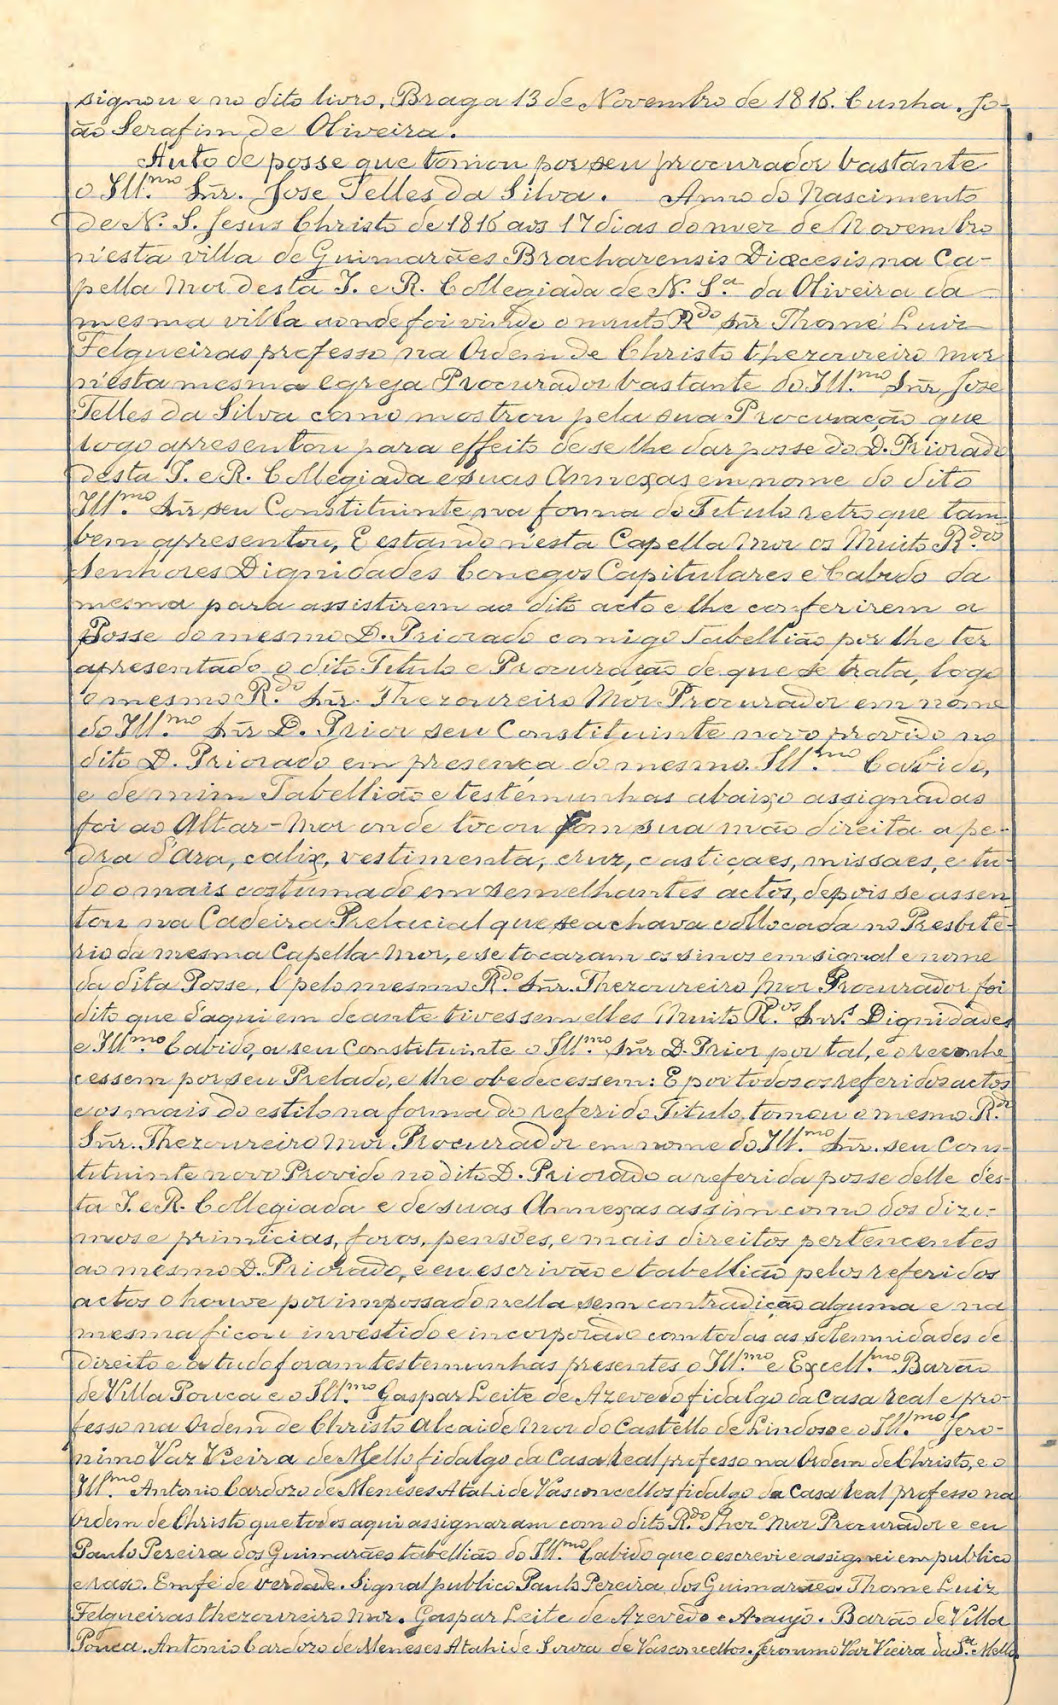 signou e no dito livro. Braga 13 de Novembro de 1816. Cunha. Jo-
ão Serafim de Oliveira.
Auto de posse que tomou por seu procurador bastante
o Ill.mo Sñr. Jose Telles da Silva. Anno do Nascimento
de N. S. Jesus Christo de 1816 aos 17 dias do mez de Novembro
n'esta villa de Guimarães Bracharensis Diœcesis na Ca-
pella Mor desta I. e R. Collegiada de N. S.ª da Oliveira da
mesma villa aonde foi vindo o muito R.do Sñr Thomé Luiz
Felgueiras professo na Ordem de Christo thezoureiro mor
n'esta mesma egreja Procurador bastante do Ill.mo Sñr Jose
Telles da Silva como mostrou pela sua Procuração que
logo apresentou para effeito de se lhe dar posse do D. Priorado
desta I. e R. Collegiada e suas Annexas em nome do dito
Ill.mo Sñr seu Constituinte na forma do Titulo retro que tam-
bem apresentou, E estando n'esta Capella Mor os Muito R.dos
Senhores Dignidades Conegos Capitulares e Cabido da
mesma para assistirem ao dito acto e lhe conferirem a
Posse do mesmo D. Priorado comigo Tabellião por lhe ter
apresentado o dito Titulo e Procuração de que se trata, logo
o mesmo R.do Sñr. Thezoureiro Mor Procurador em nome
do Ill.mo Sñr D. Prior seu Constituinte novo provido no
dito D. Priorado em presença do mesmo Ill.mo Cabido,
e de mim Tabellião e testemunhas abaixo assignadas
foi ao Altar-Mor onde tocou com sua mão direita a pe-
dra d'Ara, calix, vestimenta, cruz, castiçaes, missaes, e tu-
do o mais costumado em semelhantes actos, depois se assen-
tou na Cadeira Prelacial que se achava collocada no Presbite-
rio da mesma Capella-Mor, e se tocaram os sinos em signal e nome
da dita Posse. E pelo mesmo R.do Sñr. Thezoureiro Mor Procurador foi
dito que d'aqui em deante tivessem elles Muito R.dos Snr.s Dignidades
e Ill.mo Cabido, a seu Constituinte o Ill.mo Sñr D. Prior por tal, e o reconhe
cessem por seu Prelado, e lhe obedecessem: E por todos os referidos actos
e os mais do estilo na forma do referido Titulo, tomou o mesmo R.do
Sñr. Thezoureiro Mor Procurador em nome do Ill.mo Sñr. seu Cons-
tituinte novo Provido no dito D. Priorado a referida posse delle d'es-
ta I. e R. Collegiada e de suas Annexas assim como dos dizi-
mos e primicias, foros, pensões, e mais direitos pertencentes
ao mesmo D. Priorado, e eu escrivão e tabellião pelos referidos
actos o houve por impossado nella sem contradição alguma e na
mesma ficou investido e incorporado com todas as solemnidades de
direito e a tudo foram testemunhas presentes o Ill.mo e Excell.mo Barão
de Villa Pouca e o Ill.mo Gaspar Leite de Azevedo fidalgo da Casa real e pro-
fesso na Ordem de Christo Alcaide Mor do Castello de Lindoso e o Ill.mo Jero-
nimo Vaz Vieira de Mello fidalgo da Casa Real professo na Ordem de Christo, e o
Ill.mo Antonio Cardozo de Meneses Atahide Vasconcellos fidalgo da Casa real professo na
ordem de Christo que todos aqui assignaram com o dito R.do Thez.o Mor Procurador e eu
Paulo Pereira dos Guimarães tabellião do Ill.mo Cabido que o escrevi e assignei em publico
e raso. Em fé de verdade. Signal publico Paulo Pereira dos Guimarães. Thome Luiz
Felgueiras thezoureiro Mor. Gaspar Leite de Azevedo e Araujo. Barão de Villa
Pouca. Antonio Cardozo de Meneses Atahide Souza de Vasconcellos. Jeronimo Vaz Vieira da S.ª Mello